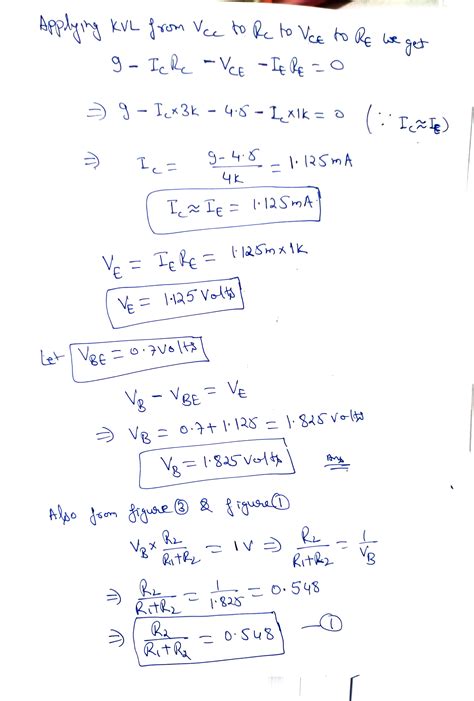 Applying KVL from Vcc to Rc to VCE to RE we get
9 - IcRc - VCE - IERE = 0
⇒ 9 - Ic×3k - 4.5 - Ic×1k = 0 (∵ Ic≈IE)
⇒ Ic = (9-4.5)/4k = 1.125mA
Ic ≈ IE = 1.125mA
VE = IERE = 1.125m×1k
VE = 1.125 Volts
Let VBE = 0.7Volts
VB - VBE = VE
⇒ VB = 0.7+1.125 = 1.825 volts
VB = 1.825 volts Ans
Also from figure ③ & figure ①
VB × R2/(R1+R2) = 1V ⇒ R2/(R1+R2) = 1/VB
⇒ R2/(R1+R2) = 1/1.825 = 0.548
⇒ R2/(R1+R2) = 0.548 — ①